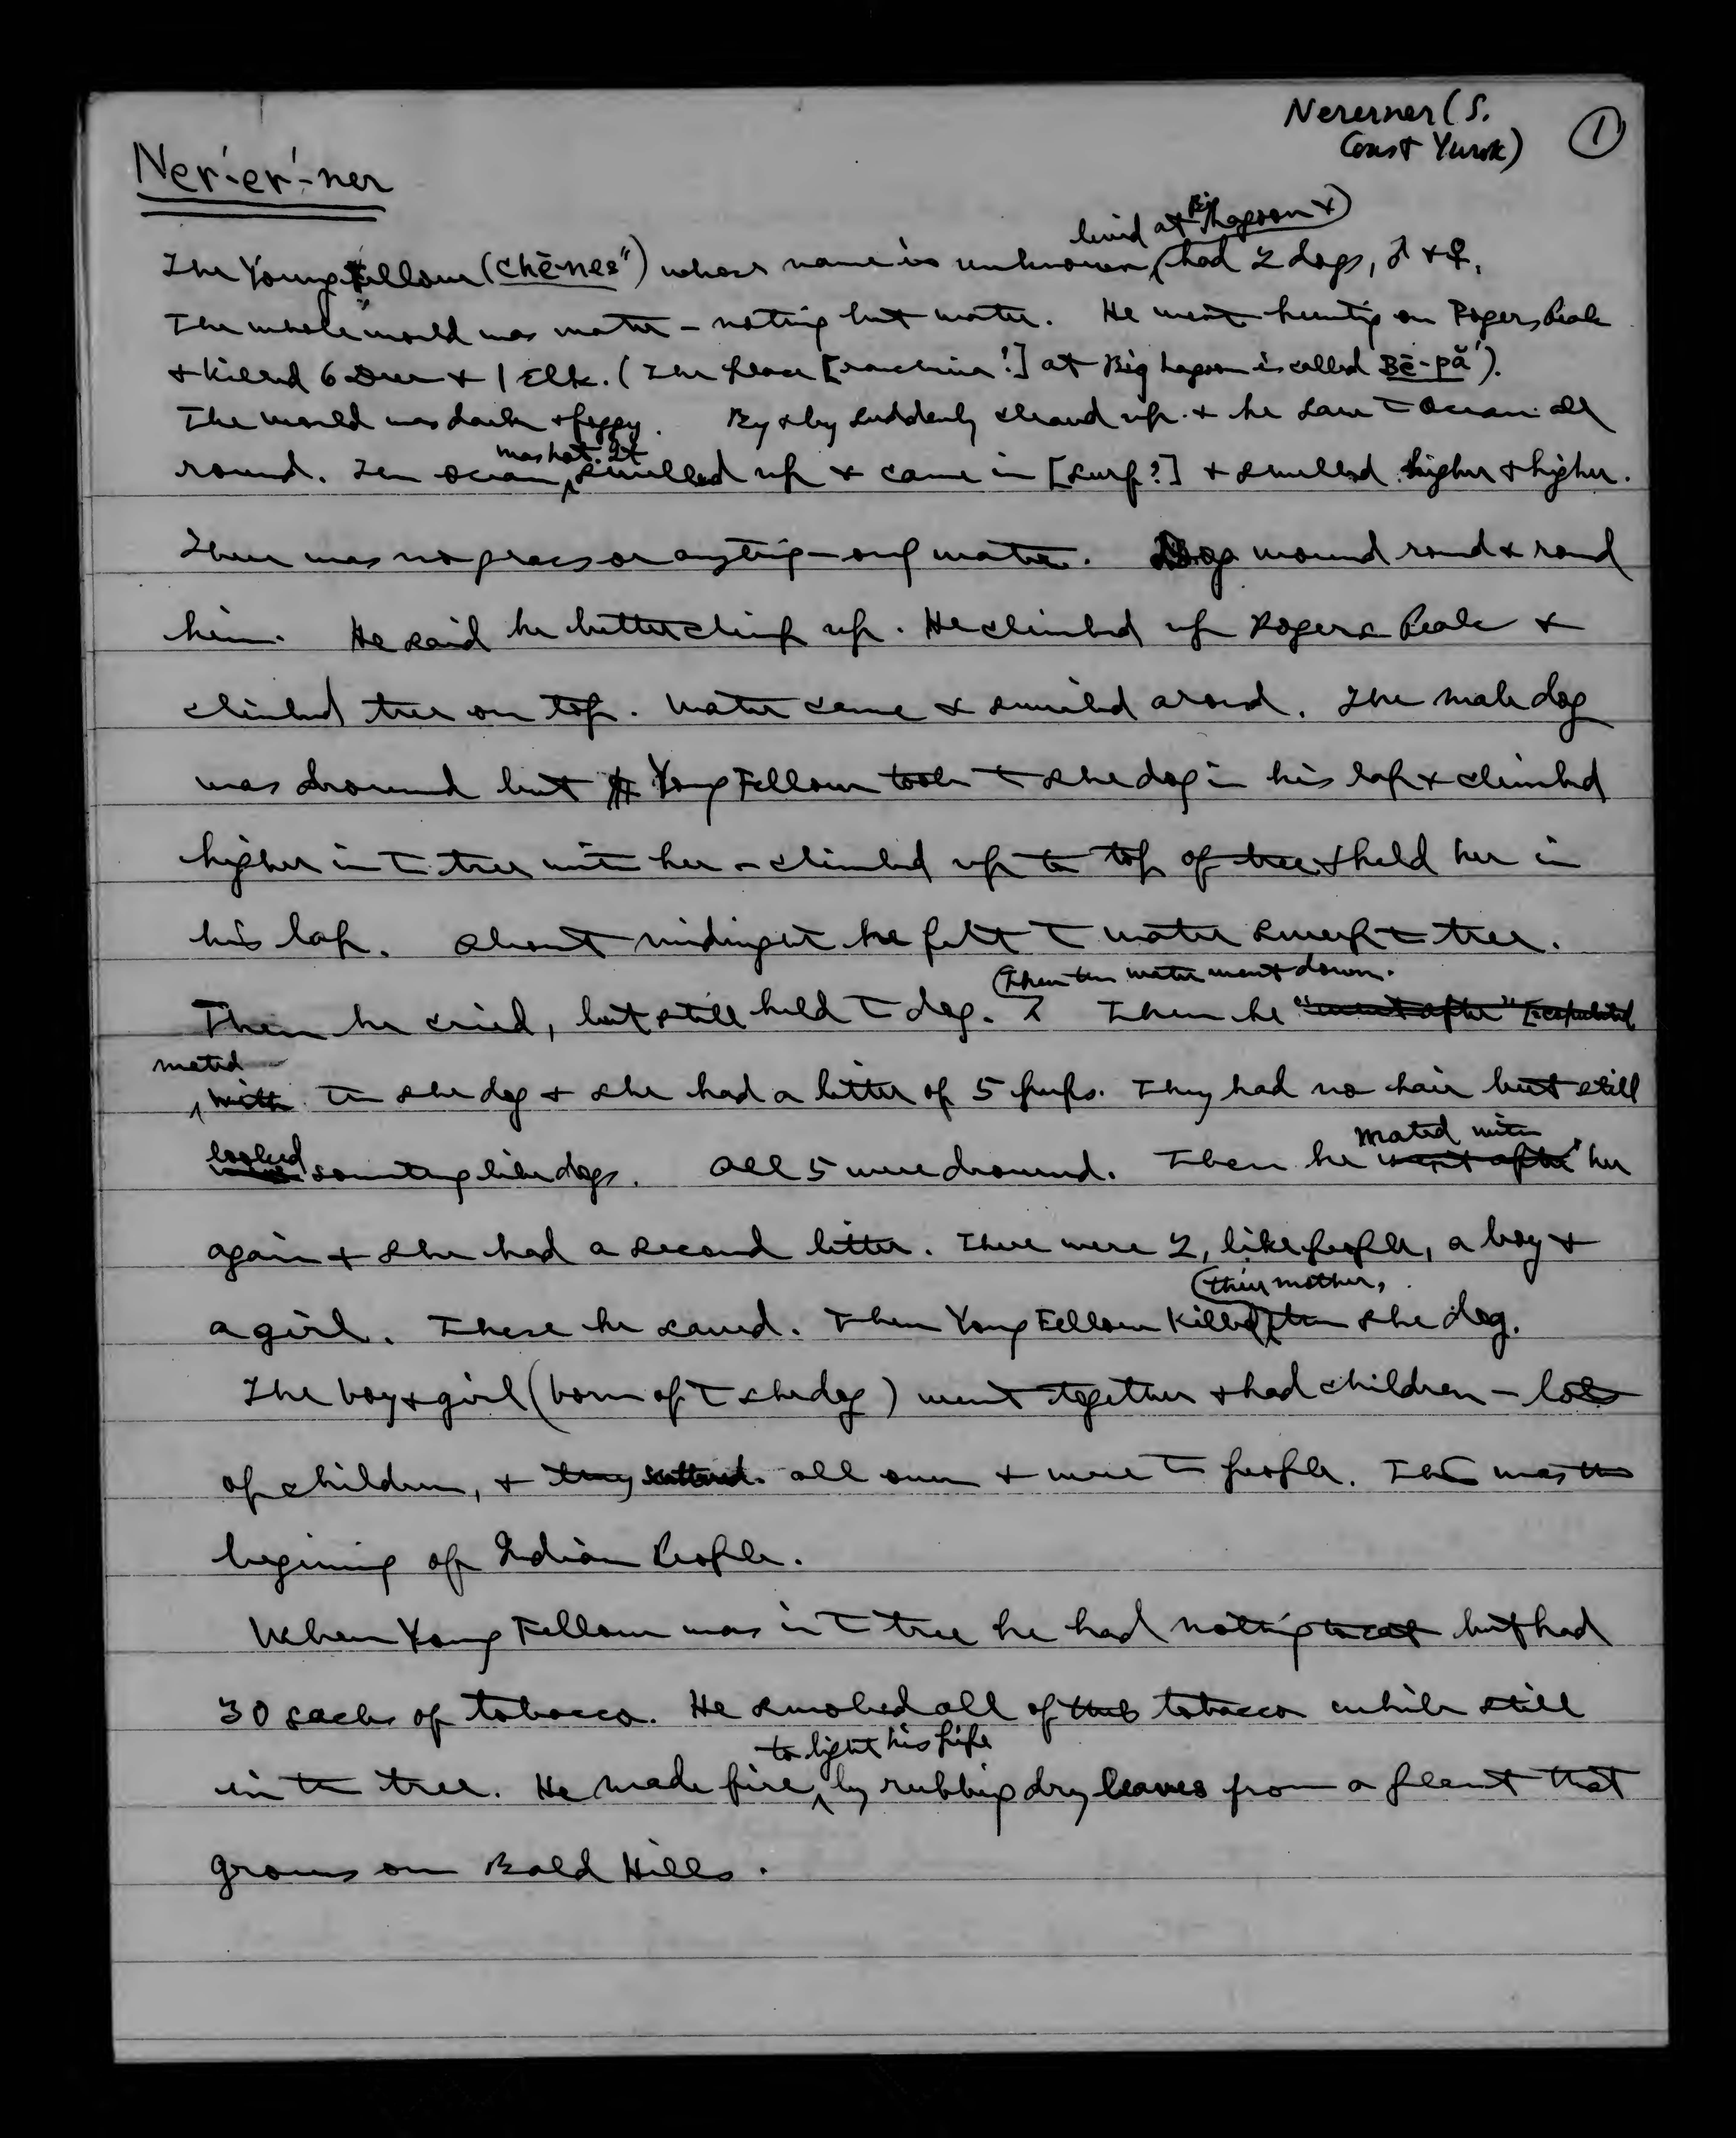 Nererner (S.
Coast Yurok) 1
Ner'-er'-ner
lived at Big Lagoon &
The Young Fellow (chē-nes") whose name is unknown, had 2 dogs, ♂ & ♀.
The whole world was water - nothing but water. He went hunting on Rogers Peak
& killed 6 Deer & 1 Elk. (The place [rancheria?] at Big Lagoon is called Bē-pă').
The world was dark & foggy. By & by suddenly cleared up & he saw the Ocean all
was hot. It
round. The ocean swelled up & came in [surf?] & swelled higher & higher.
There was no grass or anything - only water. Dogs wound round & round
him. He said he better climb up. He climbed up Rogers Peak &
climbed tree on top. Water came & swirled around. The male dog
was drowned but Young Fellow took the she dog in his lap & climbed
higher in the tree with her - climbed up to top of tree & held her in
his lap. About midnight he felt the water sweep the tree.
Then the water went down.
Then he cried, but still held the dog. Then he "went after" [copulated
mated
with the she dog & she had a litter of 5 pups. They had no hair but still
looked mated with
something like dogs. All 5 were drowned. Then he went after" her
again & she had a second litter. There were 2, like people, a boy &
their mother,
a girl. These he saved. Then Young Fellow killed the she dog.
The boy & girl (born of the she dog) went together & had children - lots
of children, & they scattered all over & were the people. This was the
begining of Indian People.
When Young Fellow was in the tree he had nothing to eat but had
30 sacks of tobacco. He smoked all of this tobacco while still
to light his pipe
in the tree. He made fire by rubbing dry leaves from a plant that
grows on Bald Hills.